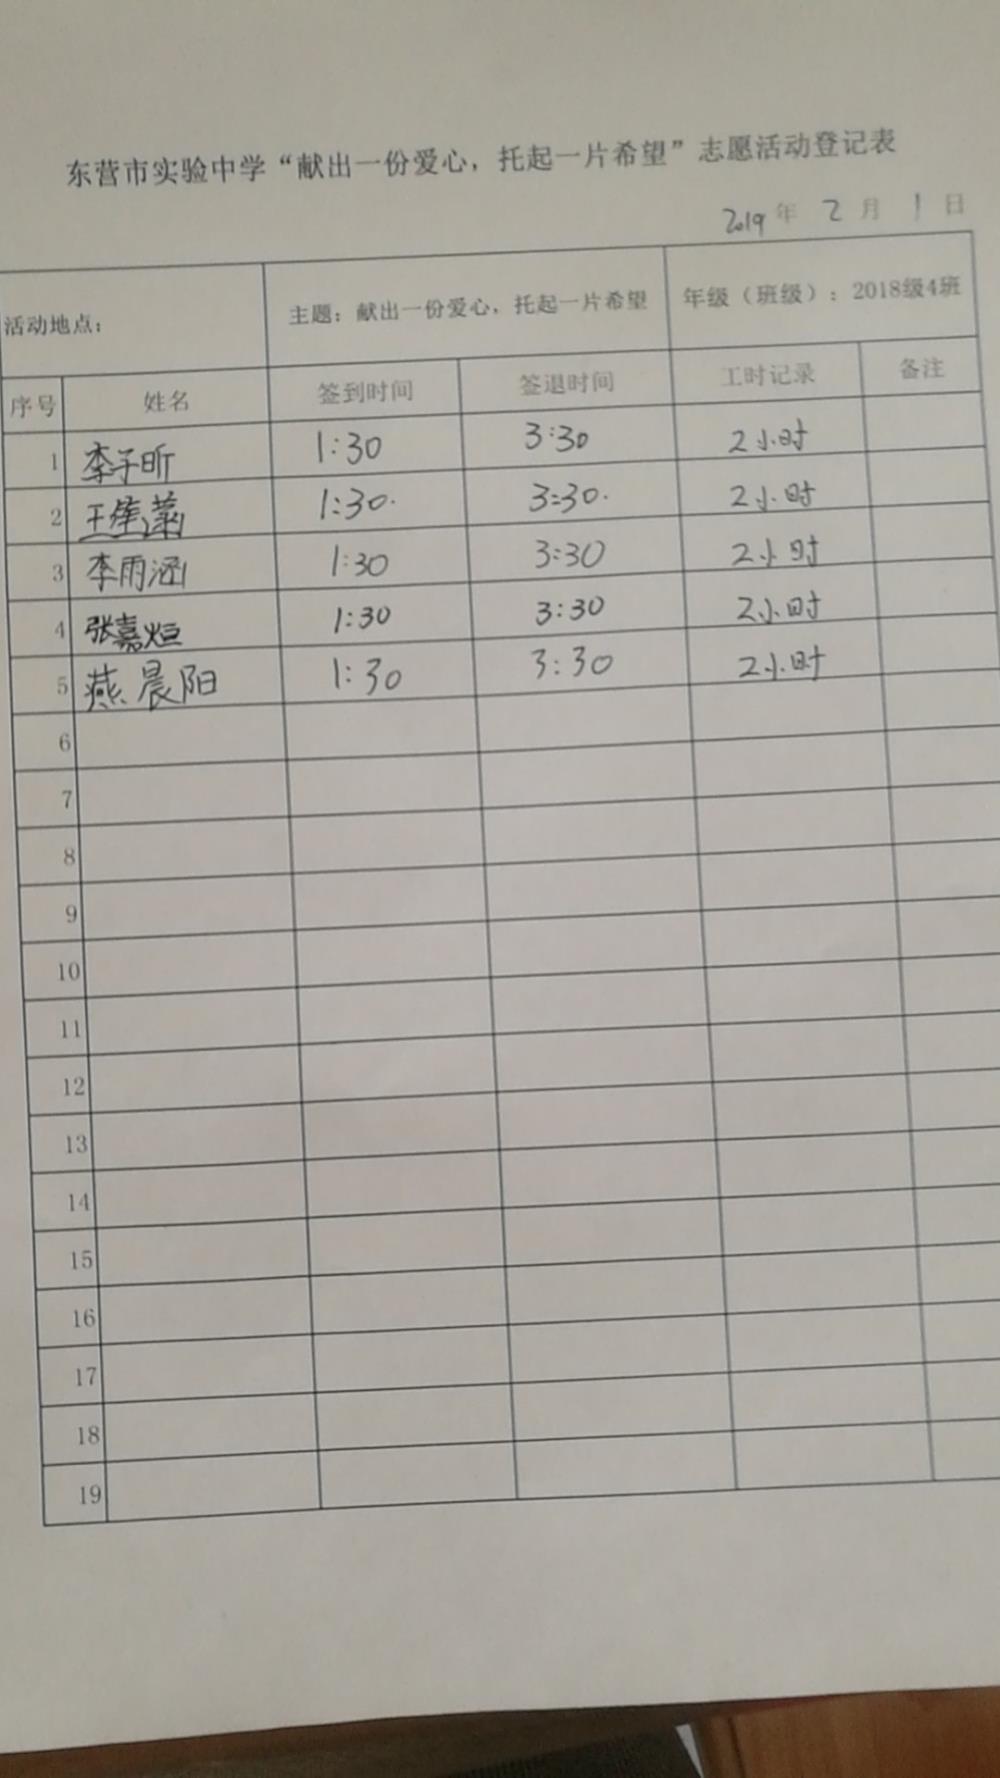 东营市实验中学“献出一份爱心，托起一片希望”志愿活动登记表
2019年 2月 1日
活动地点： 主题：献出一份爱心，托起一片希望 年级（班级）：2018级4班
序号 姓名 签到时间 签退时间 工时记录 备注
1 李子昕 1:30 3:30 2小时
2 王 1:30. 3:30. 2小时
3 李雨涵 1:30 3:30 2小时
4 张嘉烜 1:30 3:30 2小时
5 燕晨阳 1:30 3:30 2小时
6
7
8
9
10
11
12
13
14
15
16
17
18
19